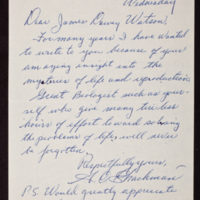 Wednesday
Dear James Dewey Watson,
For many years I have wanted
to write to you because of your
amazing insight into the
mysteries of life and reproduction.
Great Biologist such as your-
self who give many tireless
hours of effort toward solving
the problems of life, will never
be forgotten.
Respectfully yours,
P.S. Would greatly appreciate